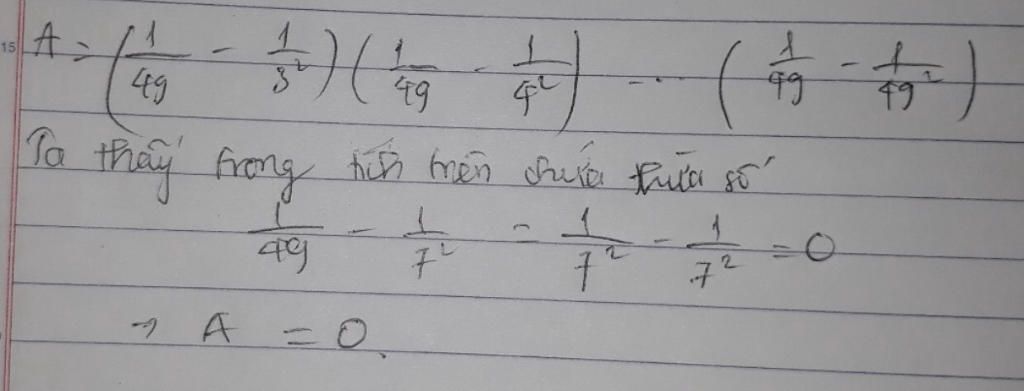 15
A = (1/49 - 1/3²)(1/49 - 1/4²) ... (1/49 - 1/49²)
Ta thấy trong tích trên chứa thừa số
1/49 - 1/7² = 1/7² - 1/7² = 0
→ A = 0.